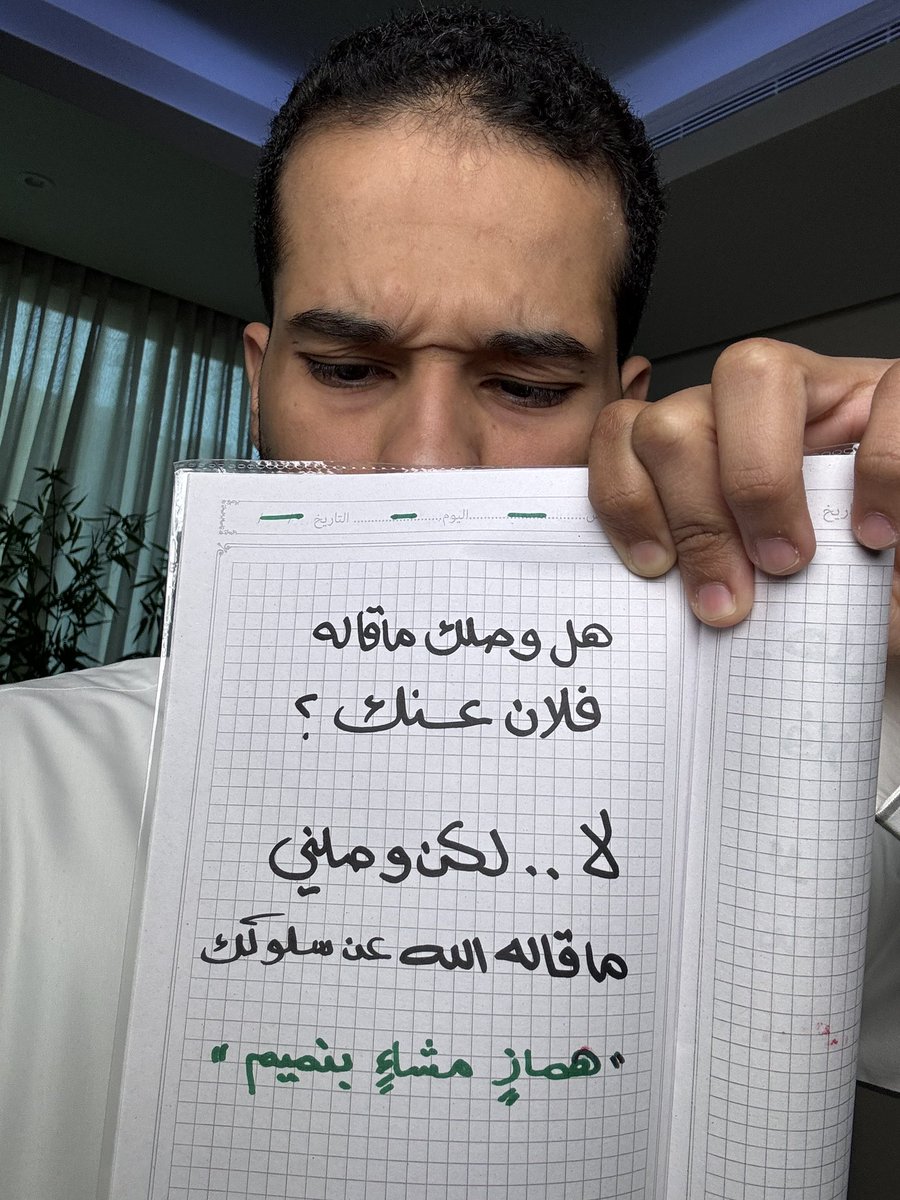 اليوم.................... التاريخ / /
هل وصلك ماقاله
فلان عنك ؟
لا .. لكن وصلني
ماقاله الله عن سلوكك
"همازٍ مشاءٍ بنميم"